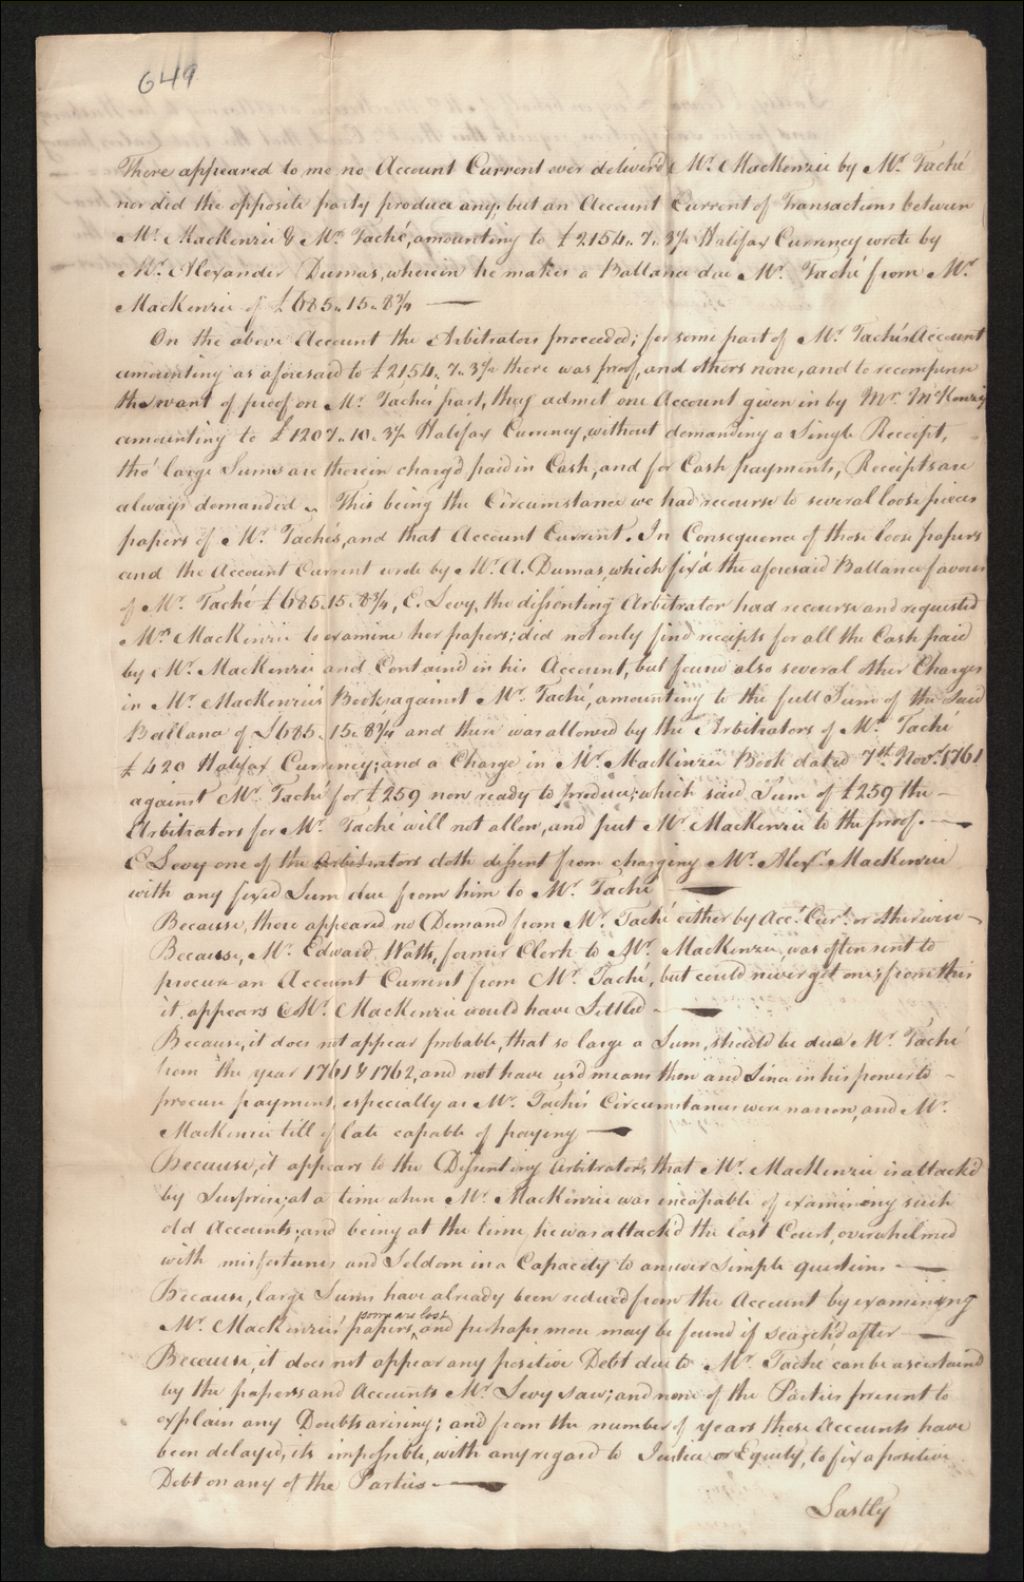 649
There appeared to me no Account Current ever deliver'd Mr. MacKenzie by Mr. Taché
nor did the opposite party produce any; but an Account Current of Transactions between
Mr. MacKenzie & Mr. Taché, amounting to £2154.. 7.. 3½ Halifax Currency wrote by
Mr. Alexander Dumas, wherein he makes a Ballance due Mr. Taché from Mr.
MacKenzie of £685.. 15.. 8¾ —
On the above Account the Arbitrators proceeded; for some part of Mr. Taché's Account
amounting as aforesaid to £2154.. 7.. 3½ there was proof, and others none, and to recompense
the want of proof on Mr. Taché's part, they admit one Account given in by Mr. McKenzie
amounting to £1207.. 10.. 3½ Halifax Currency, without demanding a Single Receipt,
tho' large Sums are therein charg'd paid in Cash, and for Cash payments, Receipts are
always demanded .. This being the Circumstance we had recourse to several loose pieces
papers of Mr. Taché's, and that Account Current. In Consequence of those loose papers
and the Account Current wrote by Mr. A. Dumas, which fix'd the aforesaid Ballance favour
of Mr. Taché £685.. 15.. 8¾, E. Levy, the dissenting Arbitrator had recourse and requested
Mrs. MacKenzie to examine her papers; did not only find receipts for all the Cash paid
by Mr. MacKenzie and Contain'd in his Account, but found also several other Charges
in Mr. MacKenzie's Books against Mr. Taché, amounting to the full Sum of the said
Ballance of £685.. 15.. 8¾ and there was allowed by the Arbitrators of Mr. Taché
£420 Halifax Currency; and a Charge in Mr. MacKinzie Book dated 7th. Novr. 1761
against Mr. Taché for £259 now ready to produce; which said Sum of £259 the —
Arbitrators for Mr. Taché will not allow, and put Mr. MacKenzie to the proof. —
E Levy one of the Arbitrators doth dissent from charging Mr. Alexr. MacKenzie
with any fixed Sum due from him to Mr. Taché —
Because, there appeared no Demand from Mr. Taché either by Acct. Curt. or otherwise —
Because, Mr. Edward Watts, former Clerk to Mr. MacKenzie, was often sent to
procure an Account Current from Mr. Taché, but could never get one; from this
it appears Mr. MacKenzie would have Settled —
Because, it does not appear probable, that so large a Sum, should be due Mr. Taché
from the year 1761 & 1762, and not have us'd means then and Since in his power to —
procure payment, especially as Mr. Taché's Circumstances were narrow, and Mr.
MacKenzie till of late capable of paying —
Because, it appears to the Dissenting Arbitrator, that Mr. MacKenzie is attack'd
by Surprise; at a time when Mr. MacKenzie was incapable of examining such
old Accounts; and being at the time he was attack'd the last Court, overwhelmed
with misfortunes and Seldom in a Capacity to answer Simple questions —
Because, large Sums have already been reduced from the Account by examining
some are lost
Mr. MacKenzies' papers, and perhaps more may be found if search'd after —
Because, it does not appear any positive Debt due to Mr. Taché can be ascertained
by the papers and Accounts Mr. Levy saw; and none of the Parties present to
explain any Doubts arising; and from the number of years these Accounts have
been delayed, its impossible, with any regard to Justice or Equity, to fix a positive
Debt on any of the Parties. —
Lastly